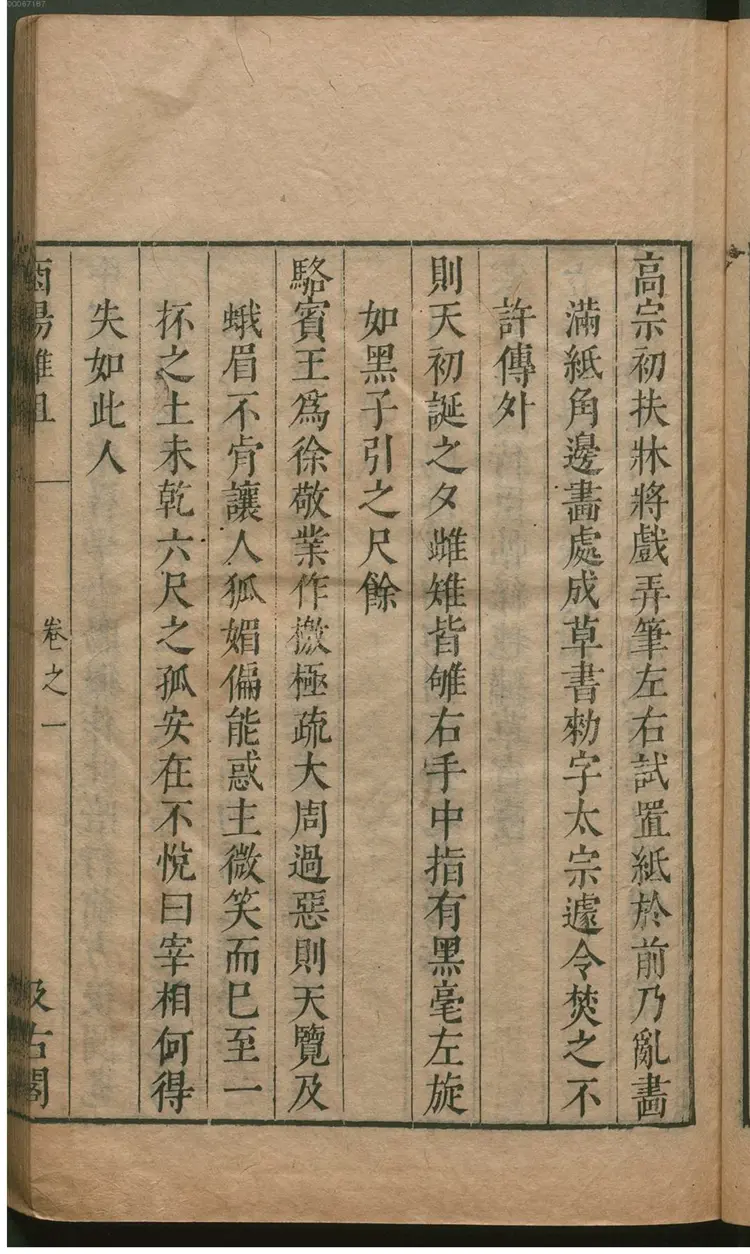 高宗初扶牀將戲弄筆左右試置紙於前乃亂畵
滿紙角邊畵處成草書勑字太宗遽令焚之不
許傳外
則天初誕之夕雌雉皆雊右手中指有黑毫左旋
如黑子引之尺餘
駱賓王爲徐敬業作檄極疏大周過惡則天覽及
蛾眉不肯讓人狐媚偏能惑主微笑而巳至一
抔之土未乾六尺之孤安在不悅曰宰相何得
失如此人
酉陽雜俎
卷之一
汲古閣
00067187